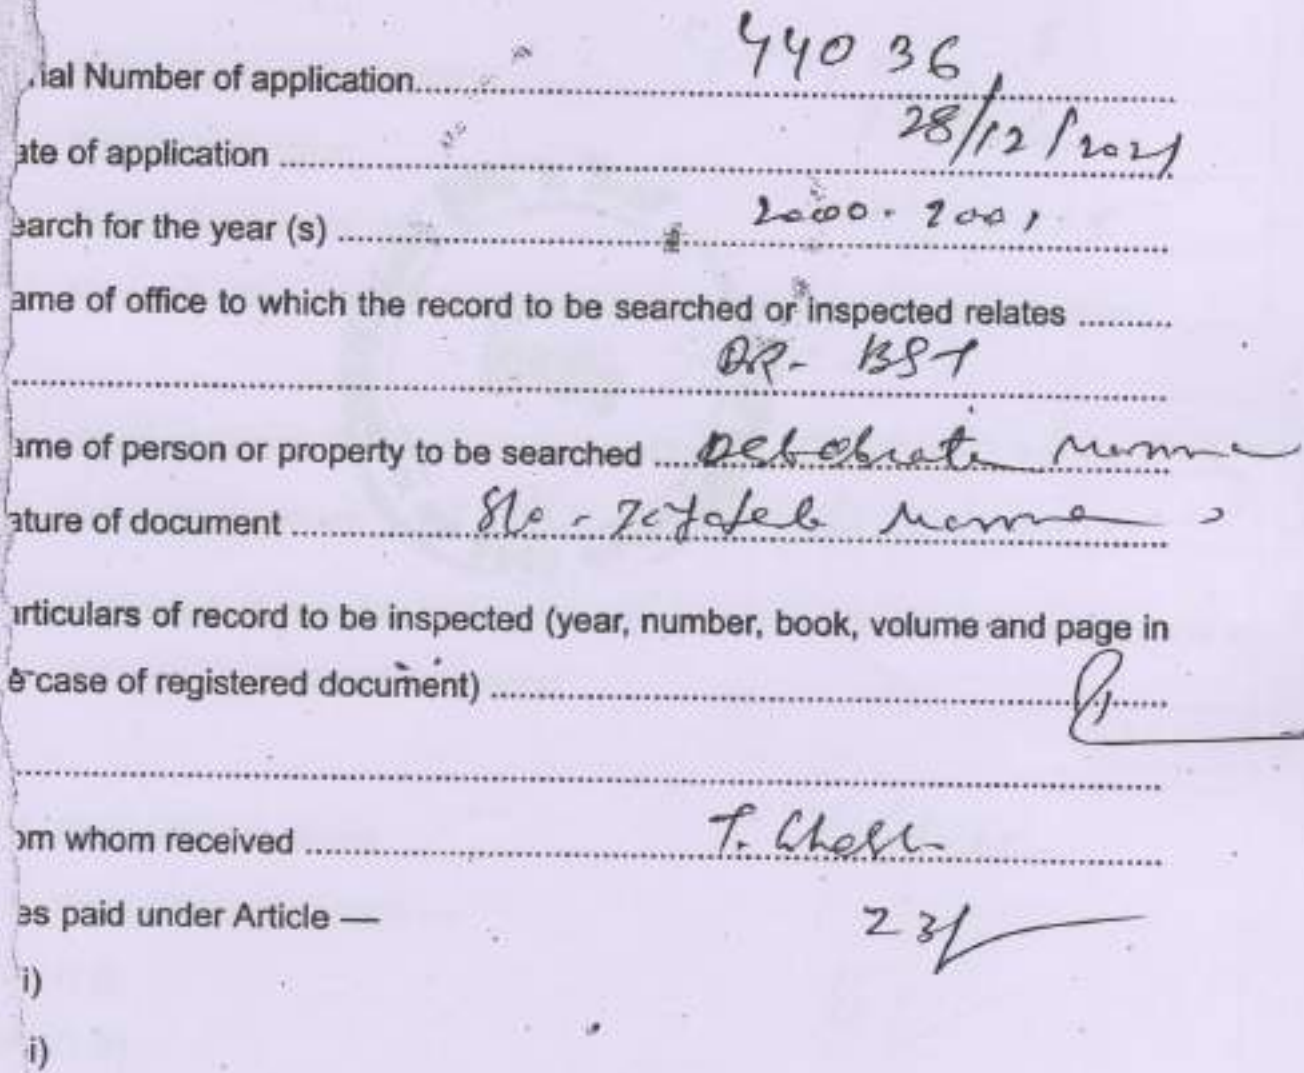 ial Number of application........ 44036
ate of application ........ 28/12/2021
earch for the year (s) ........ 2000-2001
ame of office to which the record to be searched or inspected relates ........
BST
ame of person or property to be searched ........ Debabrata Manna
ature of document ........ S/o - Manna
rticulars of record to be inspected (year, number, book, volume and page in
e case of registered document) ........
om whom received ........ T. Ghosh
es paid under Article — 23/
i)
i)